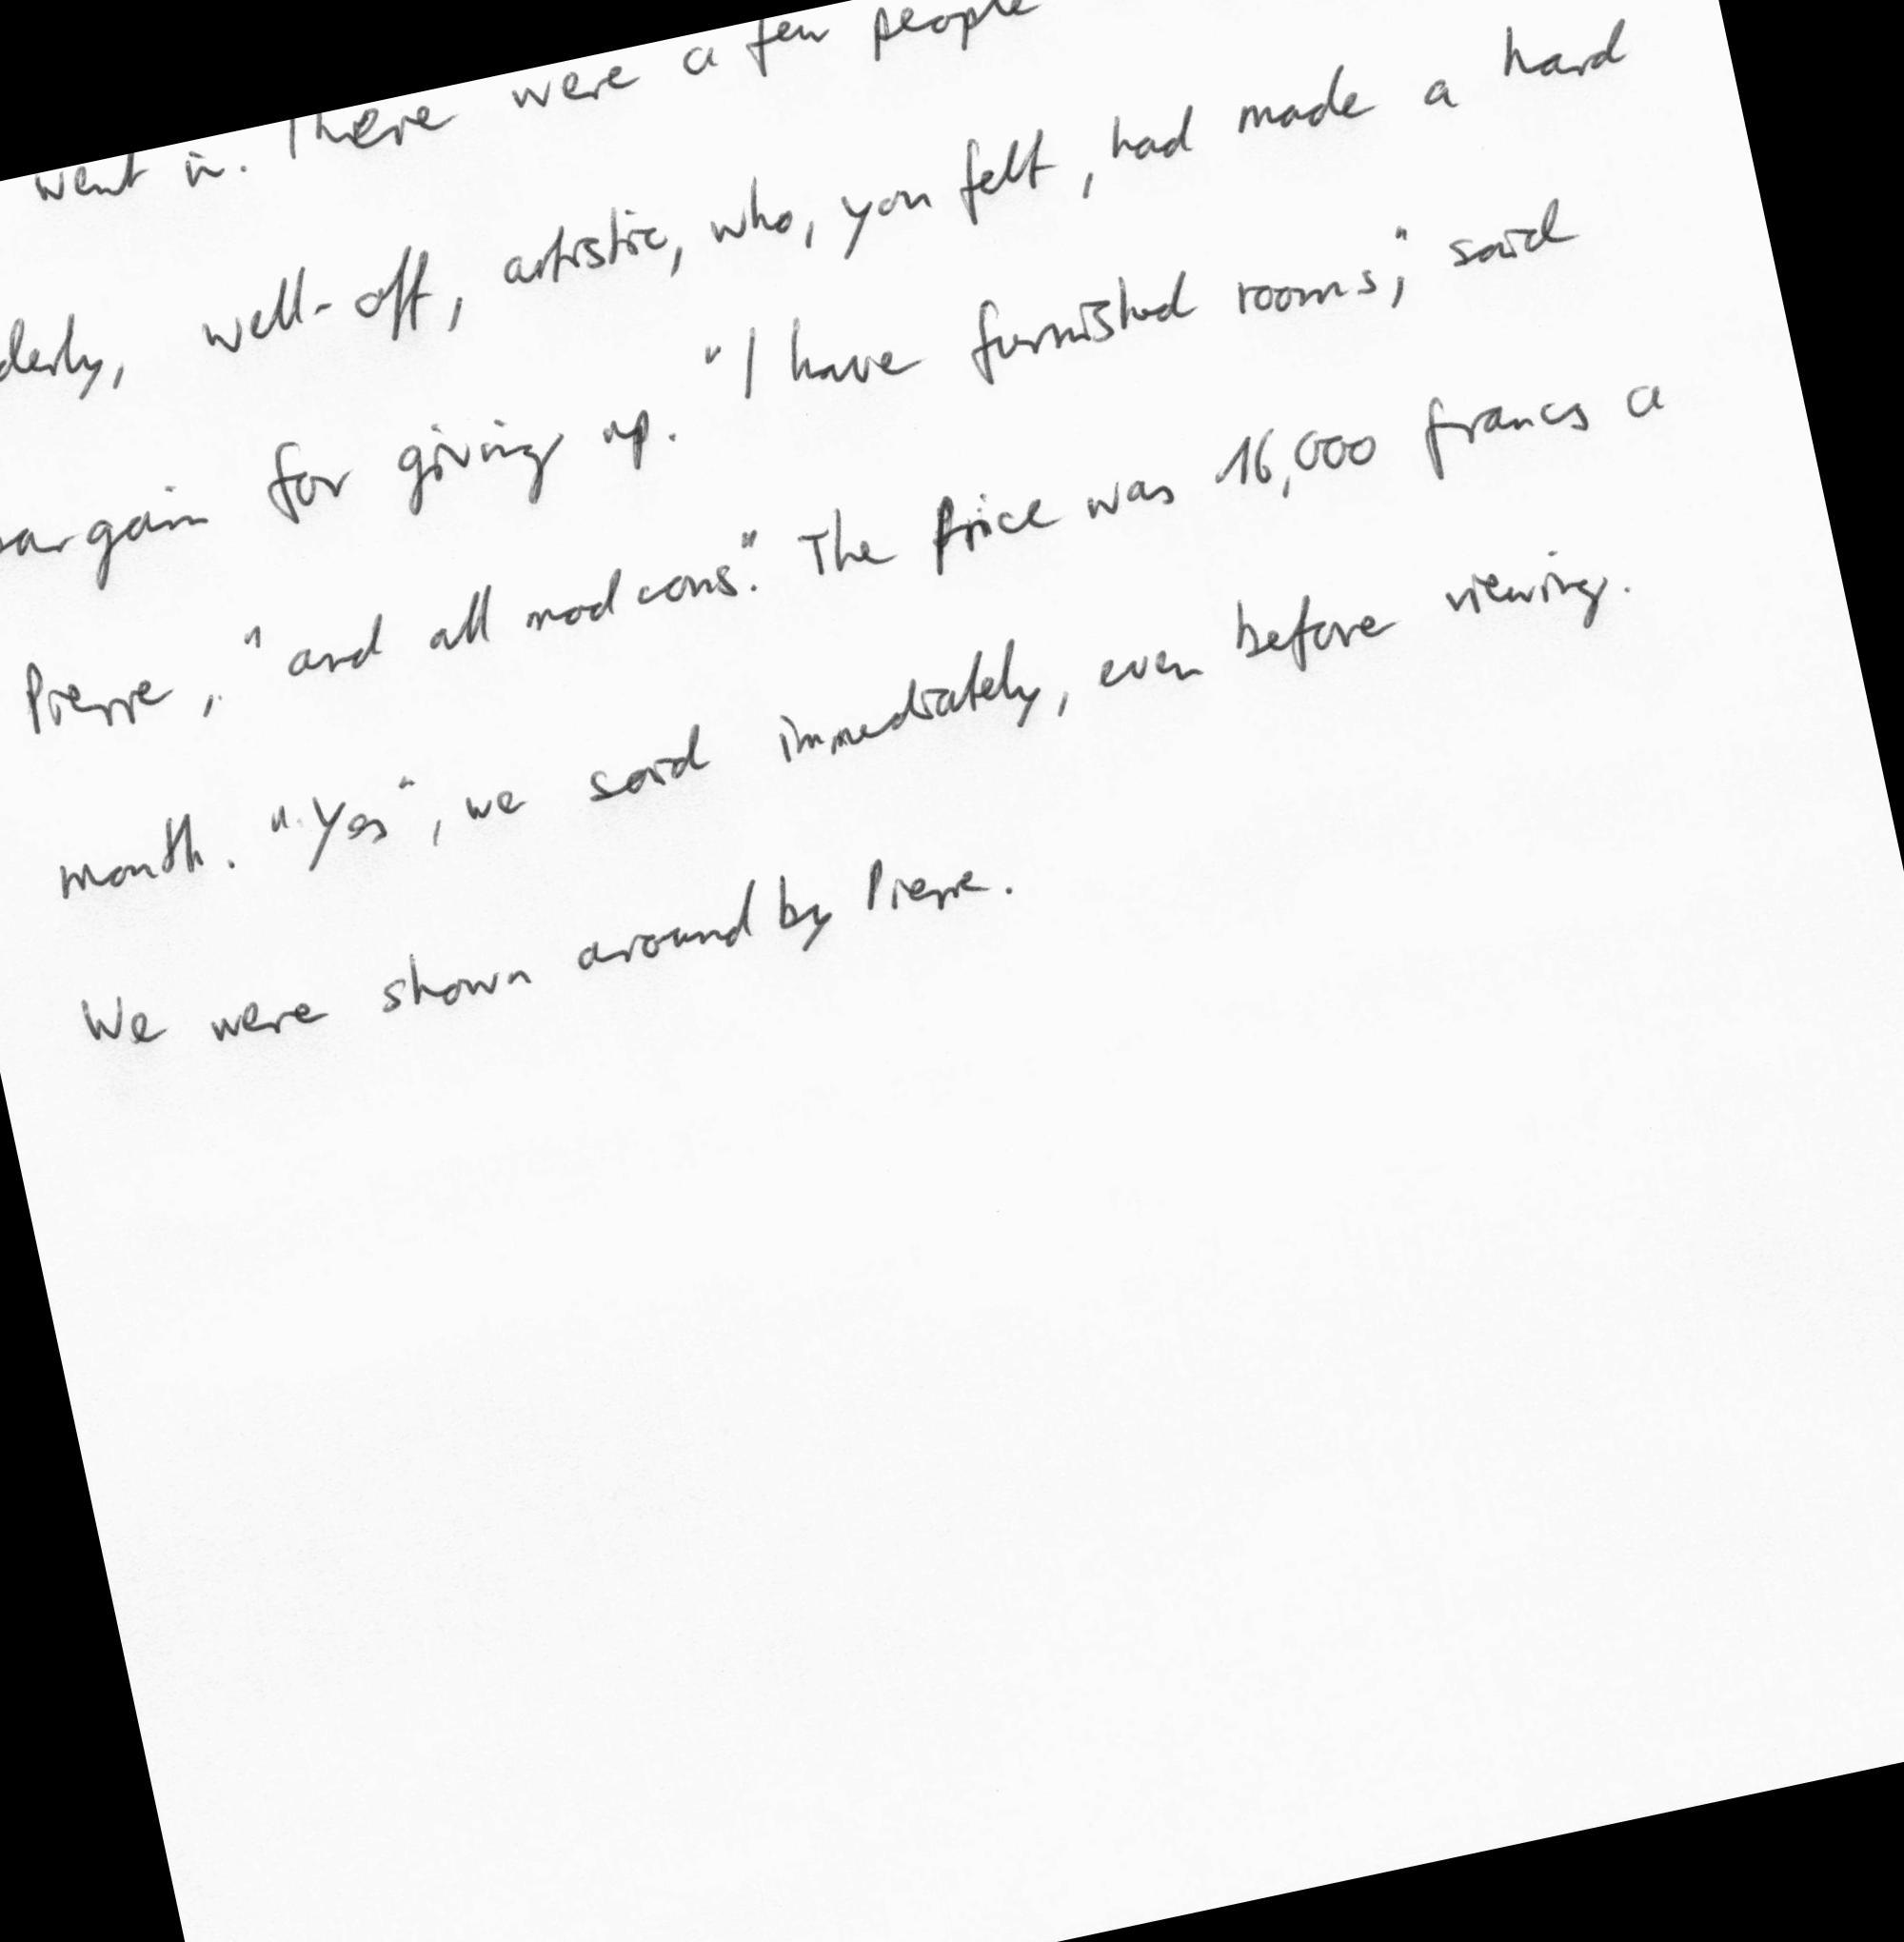 went in. There were a few people
well-off, artistic, who, you felt, had made a hard
for giving up. "I have furnished rooms," said
Pierre, "and all mod cons." The price was 16,000 francs a
month. "Yes", we said immediately, even before viewing.
We were shown around by Pierre.